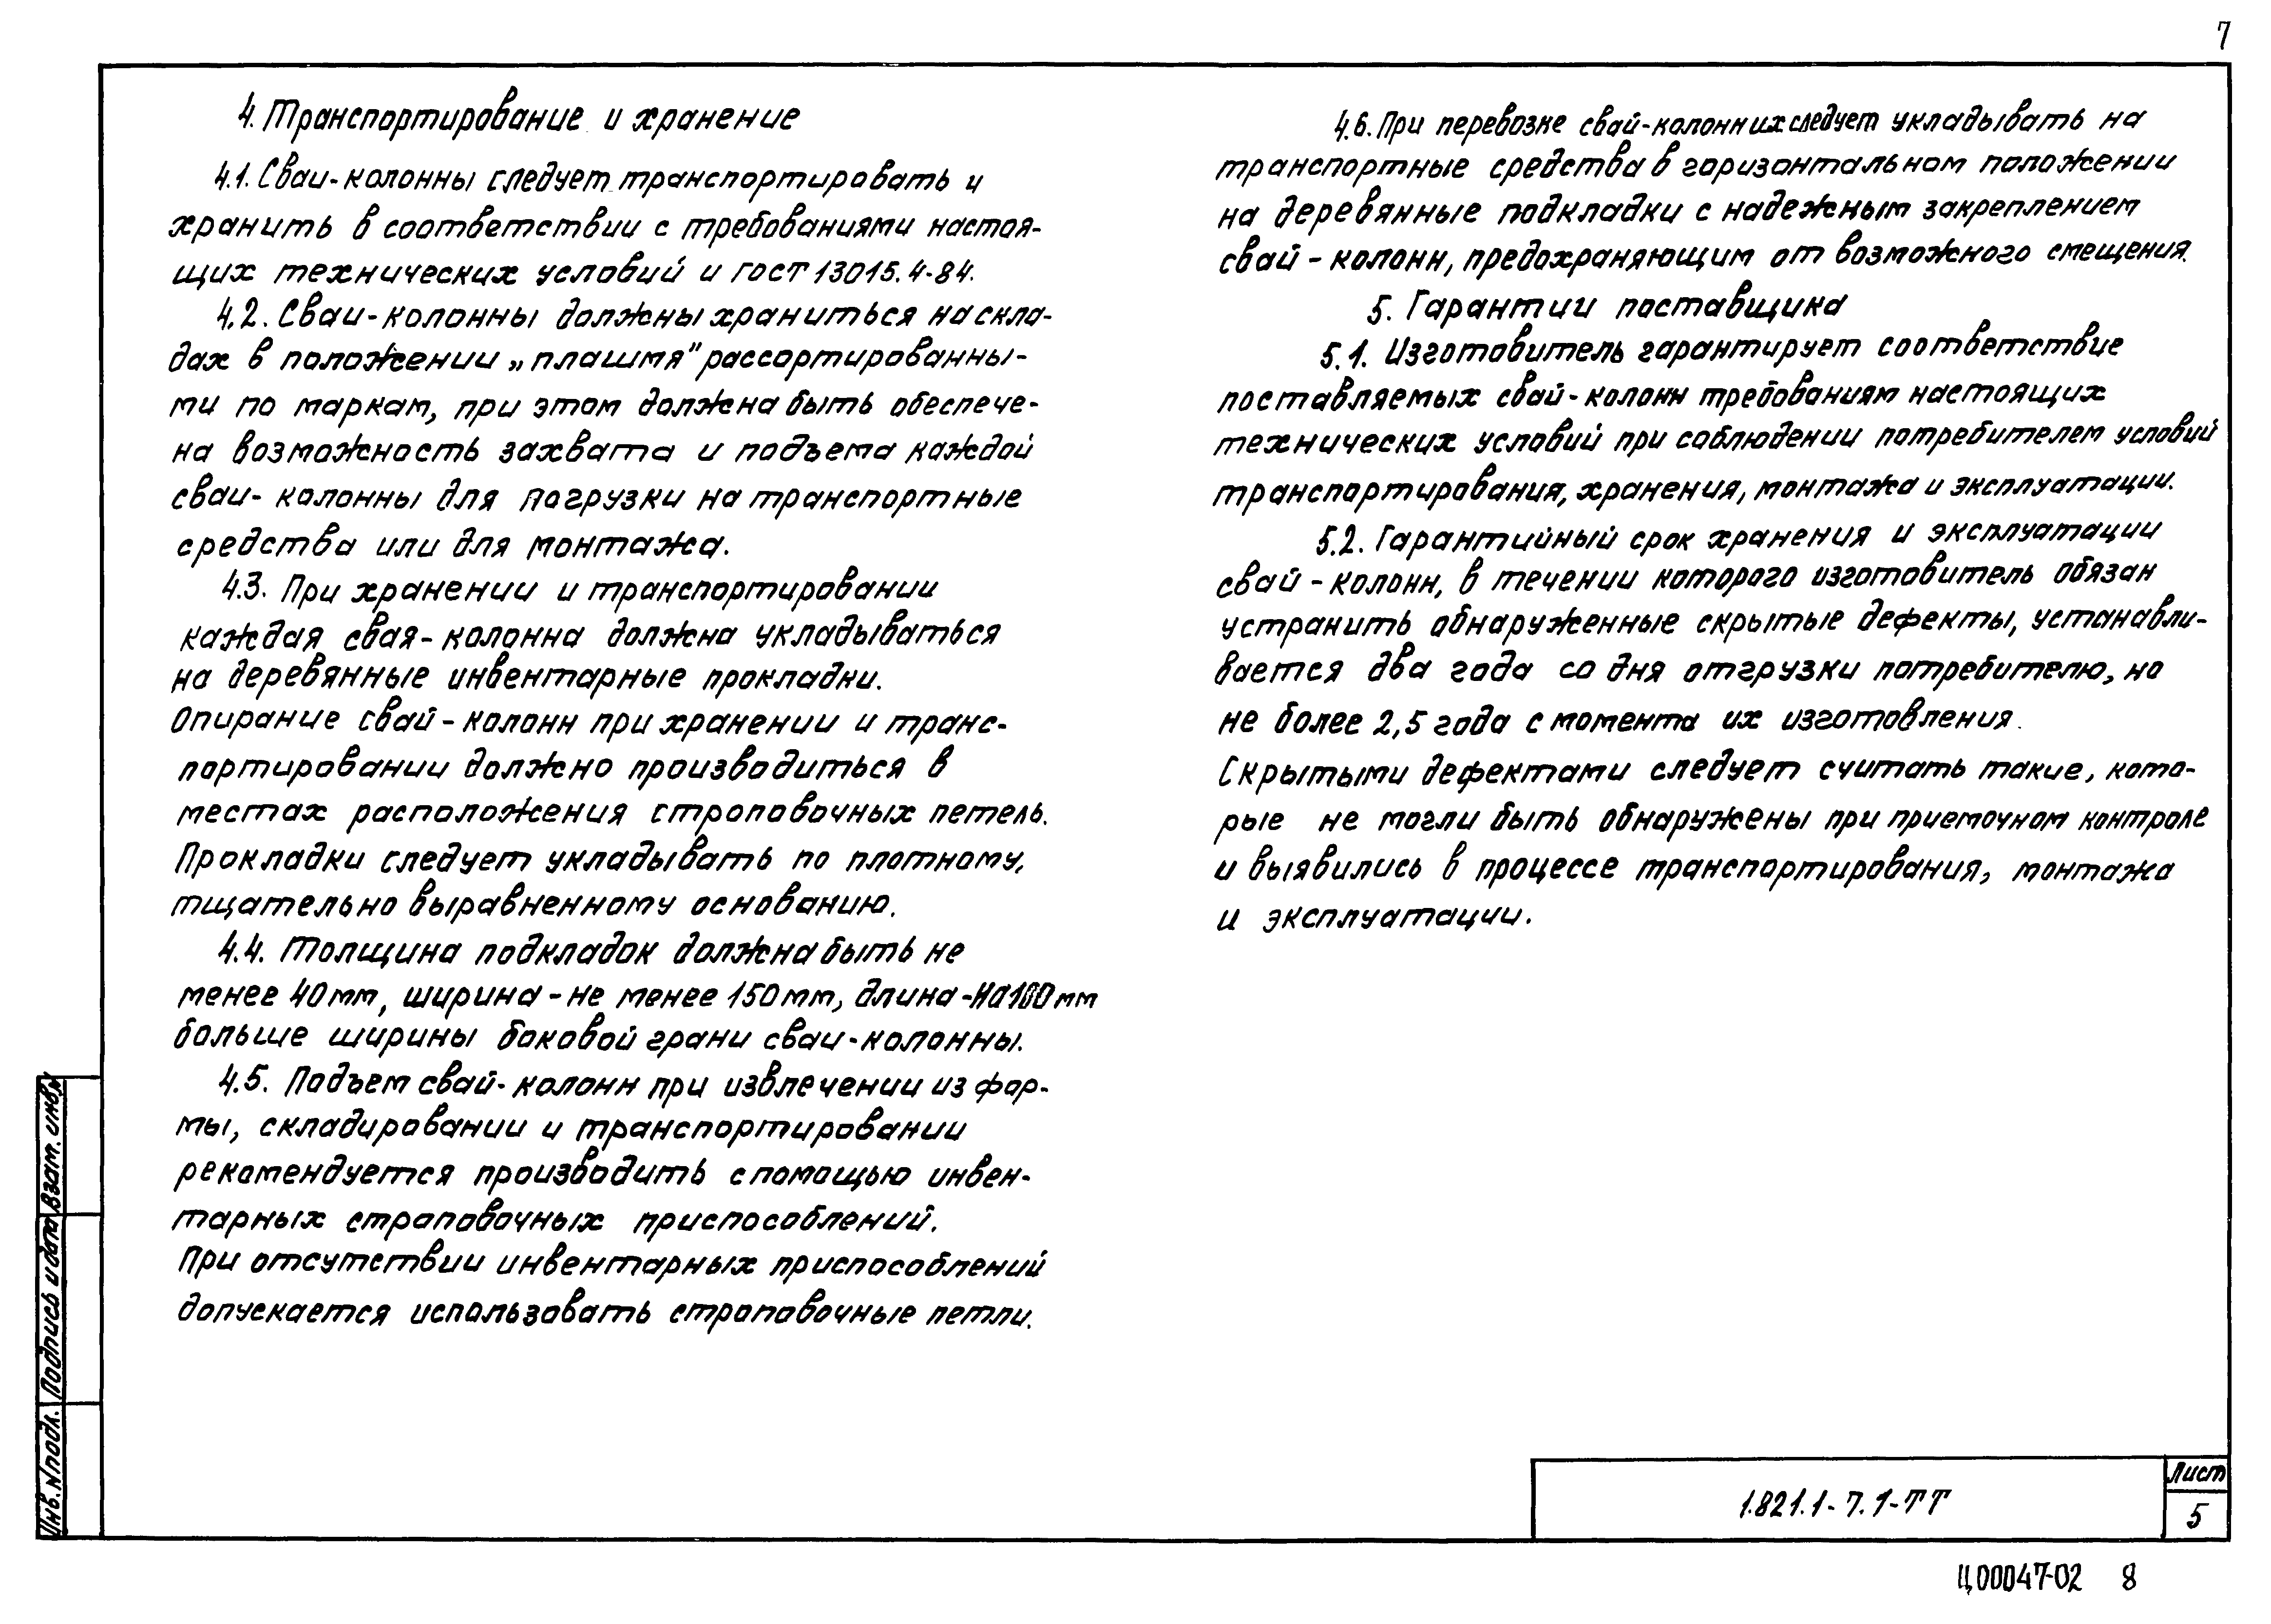 7
4. Транспортирование и хранение
4.1. Сваи-колонны следует транспортировать и
хранить в соответствии с требованиями настоя-
щих технических условий и ГОСТ 13015.4-84.
4.2. Сваи-колонны должны храниться на скла-
дах в положении „плашмя" рассортированны-
ми по маркам, при этом должна быть обеспече-
на возможность захвата и подъема каждой
сваи-колонны для погрузки на транспортные
средства или для монтажа.
4.3. При хранении и транспортировании
каждая свая-колонна должна укладываться
на деревянные инвентарные прокладки.
Опирание свай-колонн при хранении и транс-
портировании должно производиться в
местах расположения строповочных петель.
Прокладки следует укладывать по плотному,
тщательно выравненному основанию.
4.4. Толщина подкладок должна быть не
менее 40мм, ширина - не менее 150мм, длина - на 100мм
больше ширины боковой грани сваи-колонны.
4.5. Подъем свай-колонн при извлечении из фор-
мы, складировании и транспортировании
рекомендуется производить с помощью инвен-
тарных строповочных приспособлений.
При отсутствии инвентарных приспособлений
допускается использовать строповочные петли.
4.6. При перевозке свай-колонн их следует укладывать на
транспортные средства в горизонтальном положении
на деревянные подкладки с надежным закреплением
свай-колонн, предохраняющим от возможного смещения.
5. Гарантии поставщика
5.1. Изготовитель гарантирует соответствие
поставляемых свай-колонн требованиям настоящих
технических условий при соблюдении потребителем условий
транспортирования, хранения, монтажа и эксплуатации.
5.2. Гарантийный срок хранения и эксплуатации
свай-колонн, в течении которого изготовитель обязан
устранить обнаруженные скрытые дефекты, устанавли-
вается два года со дня отгрузки потребителю, но
не более 2,5 года с момента их изготовления.
Скрытыми дефектами следует считать такие, кото-
рые не могли быть обнаружены при приемочном контроле
и выявились в процессе транспортирования, монтажа
и эксплуатации.
Взам. инв.№
Подпись и дата
Инв. №подл.
1.821.1-7.1-ТТ
Лист
5
Ц00047-02 8